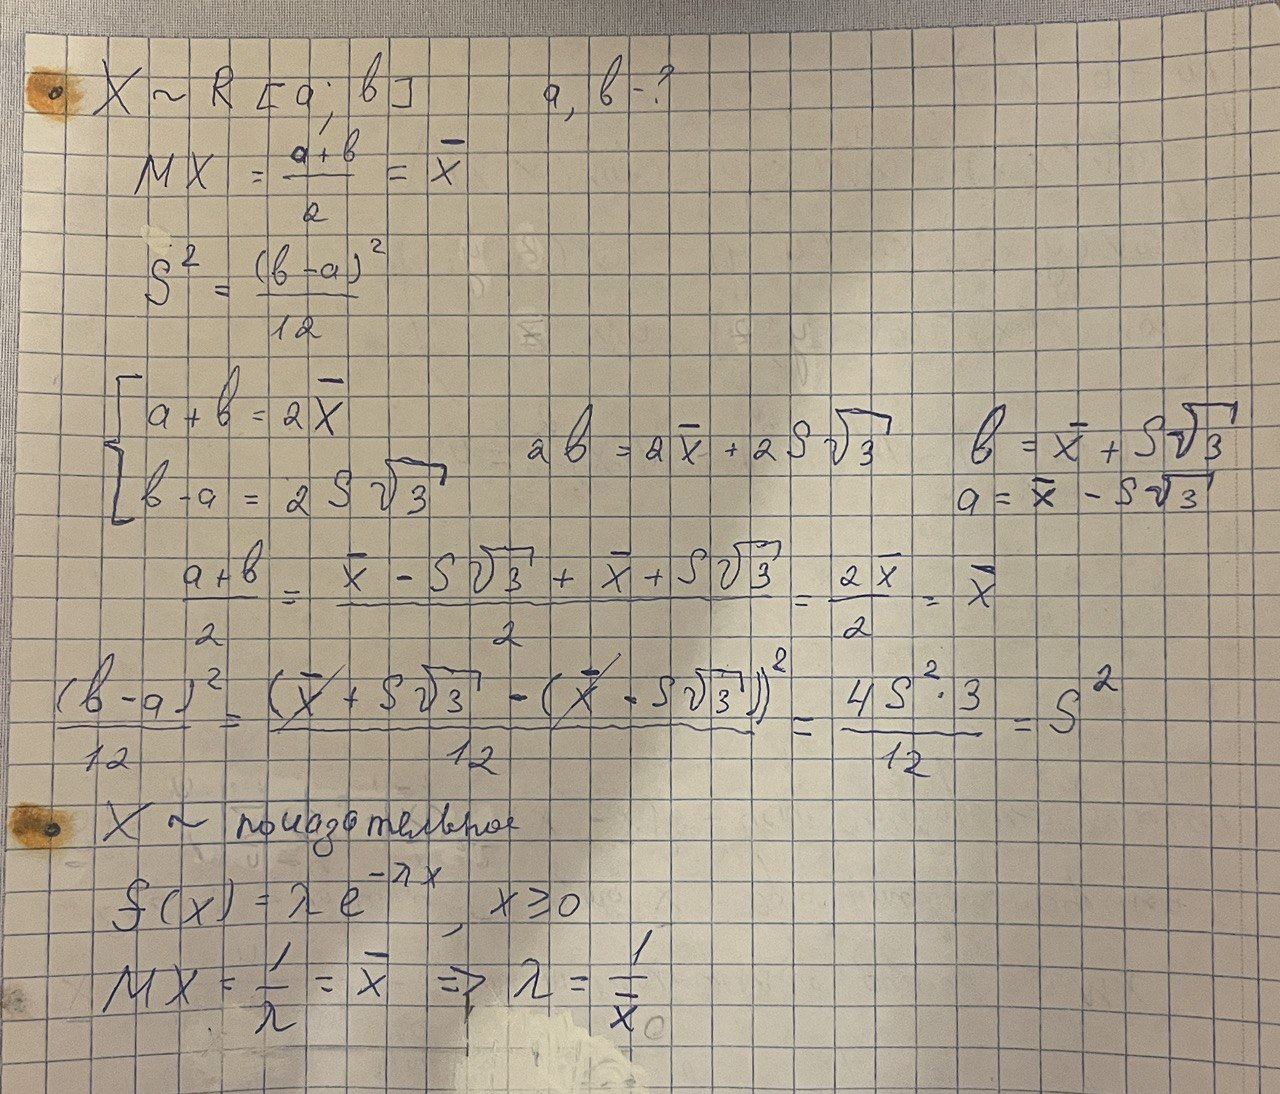 • X ~ R [a; b] a, b - ?
MX = (a + b)/2 = x̄
S² = (b - a)²/12
{ a + b = 2x̄
{ b - a = 2S√3 2b = 2x̄ + 2S√3 b = x̄ + S√3
a = x̄ - S√3
(a + b)/2 = (x̄ - S√3 + x̄ + S√3)/2 = 2x̄/2 = x̄
(b - a)²/12 = (x̄ + S√3 - (x̄ - S√3))²/12 = 4S²·3/12 = S²
• X ~ показательное
f(x) = λe^(-λx), x ≥ 0
MX = 1/λ = x̄ => λ = 1/x̄